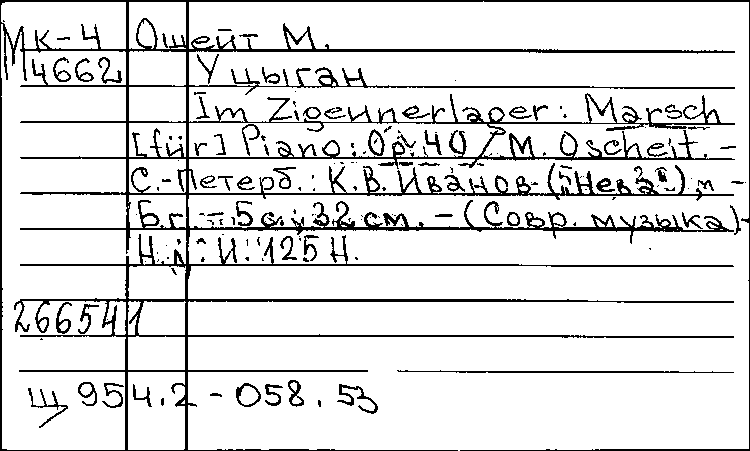 Мк-4 Ошейт М.
14662 У цыган
Im Zigeunerlager: Marsch
[für] Piano: Op. 40 / M. Oscheit. -
С.-Петерб.: К.В. Иванов ("Нева"), -
Б.г. - 5 с.; 32 см. - (Совр. музыка) -
Н.д.: И. 125 Н.
266541
Щ 954.2 - 058.53